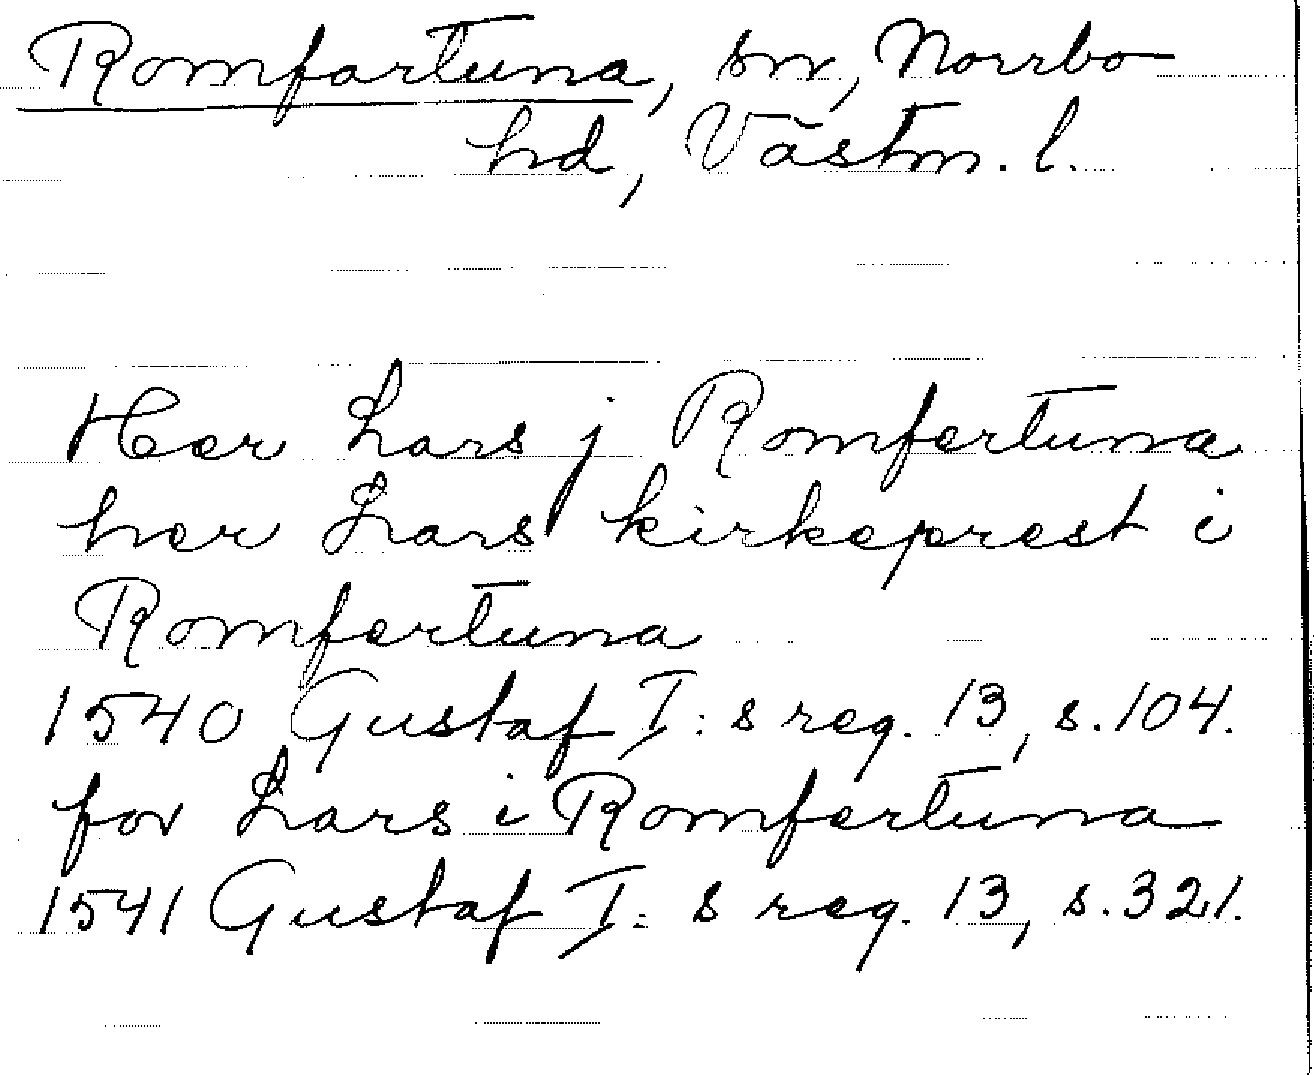 Romfartuna, sn, Norrbo
hd, Västm. l.
Her Lars j Romfertuna
her Lars kirkeprest i
Romfertuna
1540 Gustaf I: s reg. 13, s. 104.
for Lars i Romfertuna
1541 Gustaf I: s reg. 13, s. 321.